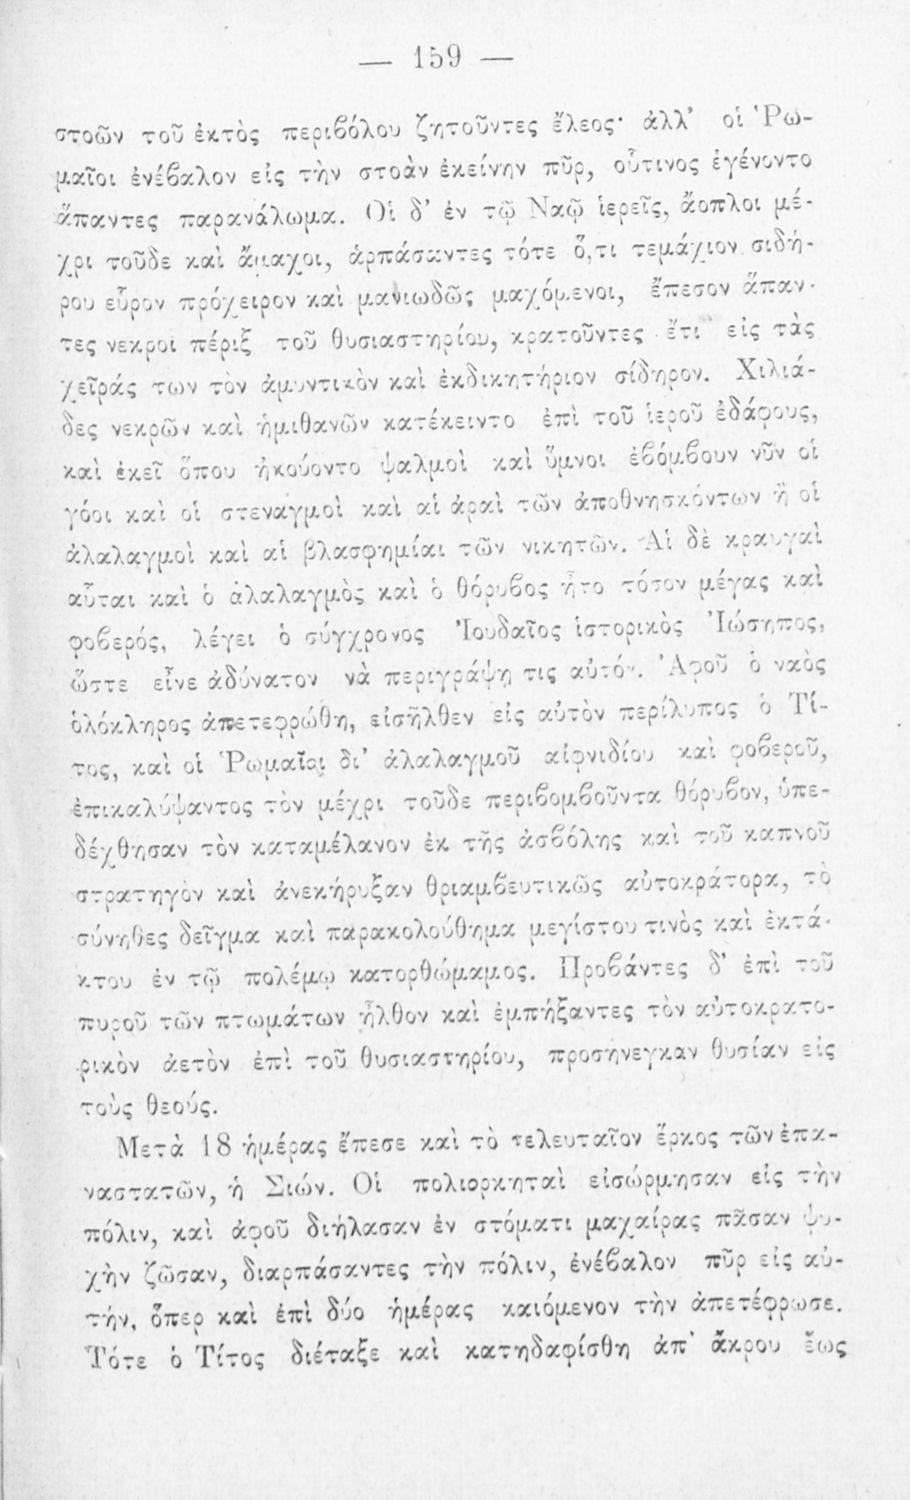 — 159 —
στοῶν τοῦ ἐκτὸς περιβόλου ζητοῦντες ἔλεος· ἀλλ’ οἱ Ῥω-
μαῖοι ἐνέβαλον εἰς τὴν στοὰν ἐκείνην πῦρ, οὗτινος ἐγένοντο
ἅπαντες παρανάλωμα. Οἱ δ’ ἐν τῷ Ναῷ ἱερεῖς, ἄοπλοι μέ-
χρι τοῦδε καὶ ἄμαχοι, ἁρπάσαντες τότε ὅ,τι τεμάχιον σιδή-
ρου εὗρον πρόχειρον καὶ μανιωδῶς μαχόμενοι, ἔπεσον ἅπαν-
τες νεκροὶ πέριξ τοῦ θυσιαστηρίου, κρατοῦντες ἔτι εἰς τὰς
χεῖράς των τὸν ἀμυντικὸν καὶ ἐκδικητήριον σίδηρον. Χιλιά-
δες νεκρῶν καὶ ἡμιθανῶν κατέκειντο ἐπὶ τοῦ ἱεροῦ ἐδάφους,
καὶ ἐκεῖ ὅπου ἠκούοντο ψαλμοὶ καὶ ὕμνοι ἐβόμβουν νῦν οἱ
γόοι καὶ οἱ στεναγμοὶ καὶ αἱ ἀραὶ τῶν ἀποθνησκόντων ἢ οἱ
ἀλαλαγμοὶ καὶ αἱ βλασφημίαι τῶν νικητῶν. Αἱ δὲ κραυγαὶ
αὗται καὶ ὁ ἀλαλαγμὸς καὶ ὁ θόρυβος ἦτο τόσον μέγας καὶ
φοβερός, λέγει ὁ σύγχρονος Ἰουδαῖος ἱστορικὸς Ἰώσηπος,
ὥστε εἶνε ἀδύνατον νὰ περιγράψῃ τις αὐτόν. Ἀφοῦ ὁ ναὸς
ὁλόκληρος ἀπετεφρώθη, εἰσῆλθεν εἰς αὐτὸν περίλυπος ὁ Τί-
τος, καὶ οἱ Ῥωμαῖοι δι’ ἀλαλαγμοῦ αἰφνιδίου καὶ φοβεροῦ,
ἐπικαλύψαντος τὸν μέχρι τοῦδε περιβομβοῦντα θόρυβον, ὑπε-
δέχθησαν τὸν καταμέλανον ἐκ τῆς ἀσβόλης καὶ τοῦ καπνοῦ
στρατηγὸν καὶ ἀνεκήρυξαν θριαμβευτικῶς αὐτοκράτορα, τὸ
σύνηθες δεῖγμα καὶ παρακολούθημα μεγίστου τινὸς καὶ ἐκτά-
κτου ἐν τῷ πολέμῳ κατορθώμαμος. Προβάντες δ’ ἐπὶ τοῦ
πυροῦ τῶν πτωμάτων ἦλθον καὶ ἐμπήξαντες τὸν αὐτοκρατο-
ρικὸν ἀετὸν ἐπὶ τοῦ θυσιαστηρίου, προσήνεγκαν θυσίαν εἰς
τοὺς θεούς.
Μετὰ 18 ἡμέρας ἔπεσε καὶ τὸ τελευταῖον ἕρκος τῶν ἐπα-
ναστατῶν, ἡ Σιών. Οἱ πολιορκηταὶ εἰσώρμησαν εἰς τὴν
πόλιν, καὶ ἀφοῦ διήλασαν ἐν στόματι μαχαίρας πᾶσαν ψυ-
χὴν ζῶσαν, διαρπάσαντες τὴν πόλιν, ἐνέβαλον πῦρ εἰς αὐ-
τήν, ὅπερ καὶ ἐπὶ δύο ἡμέρας καιόμενον τὴν ἀπετέφρωσε.
Τότε ὁ Τίτος διέταξε καὶ κατηδαφίσθη ἀπ’ ἄκρου ἕως